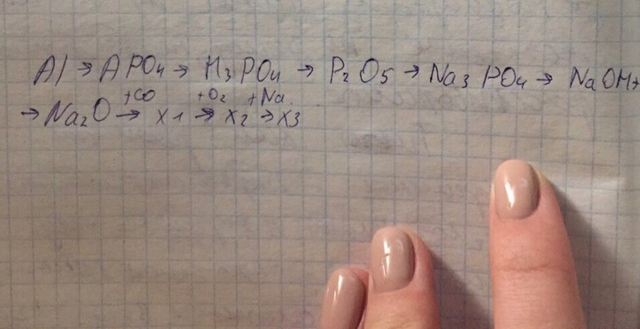 Al → APO4 → H3PO4 → P2O5 → Na3PO4 → NaOH→
→ Na2O +CO→ x1 +O2→ x2 +Na→ x3